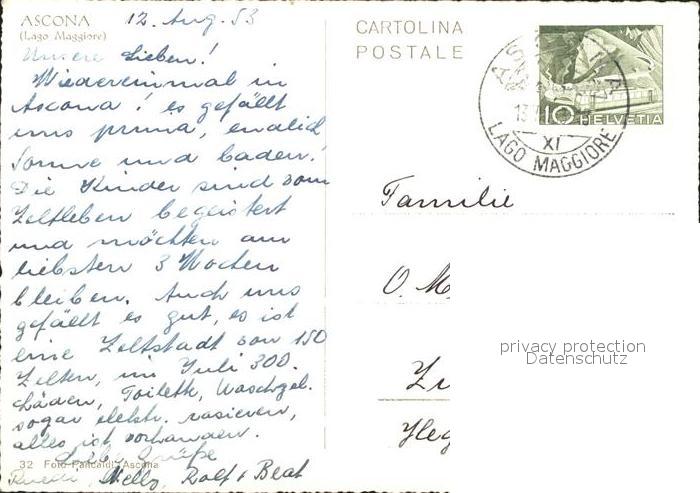 ASCONA
(Lago Maggiore)
12. Aug. 53
Unsere Lieben!
Wiedereinmal in
Ascona! es gefällt
uns prima, endlich
Sonne und baden!
Die Kinder sind vom
Zeltleben begeistert
und möchten am
liebsten 3 Wochen
bleiben. Auch uns
gefällt es gut, es ist
eine Zeltstadt von 150
Zelten, im Juli 300.
Läden, Toilette, Waschgel.
sogar elektr. rasieren,
alles ist vorhanden.
Liebe Grüsse
Ruedi, Nelly, Rolf + Beat
32 Foto Pancaldi, Ascona
CARTOLINA
POSTALE
10 HELVETIA
ASCONA
13
XI
LAGO MAGGIORE
Familie
O. M
privacy protection
Datenschutz